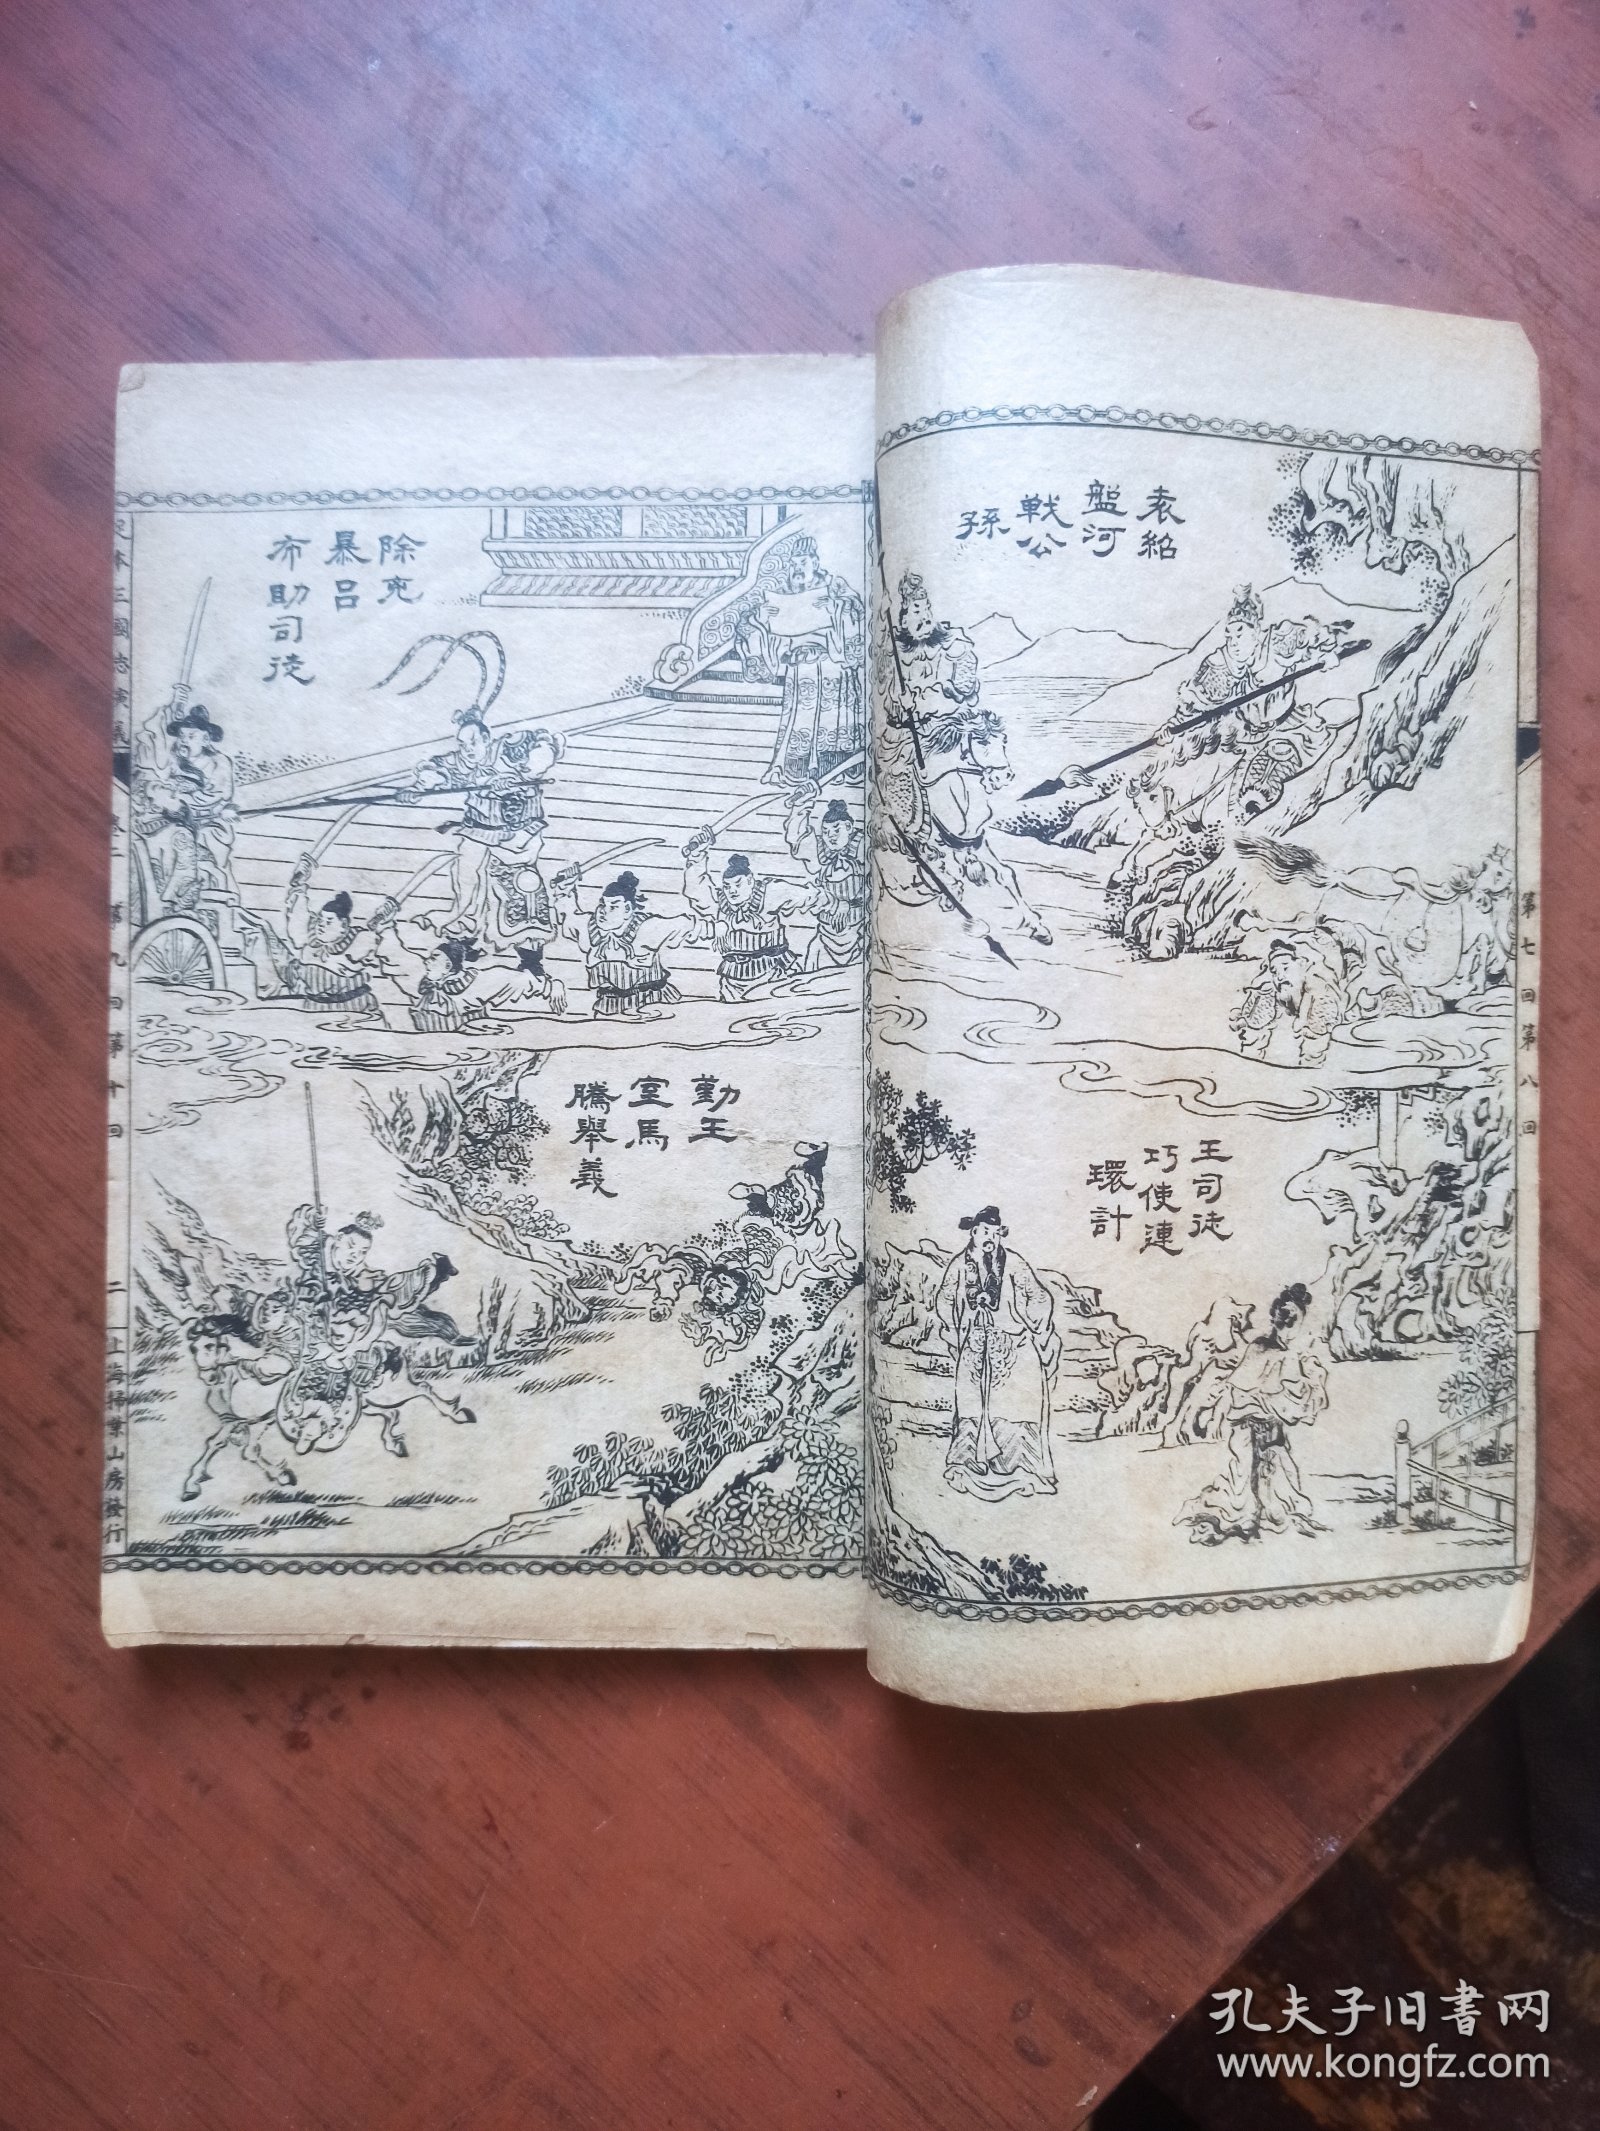 袁紹
盤河
戰公
孫
王司徒
巧使連
環計
第七回第八回
除兇
暴呂
布助司徒
勤王
室馬
騰舉義
足本三國志演義
卷二
第九回第十回
二
上海掃葉山房發行
孔夫子旧書网
www.kongfz.com